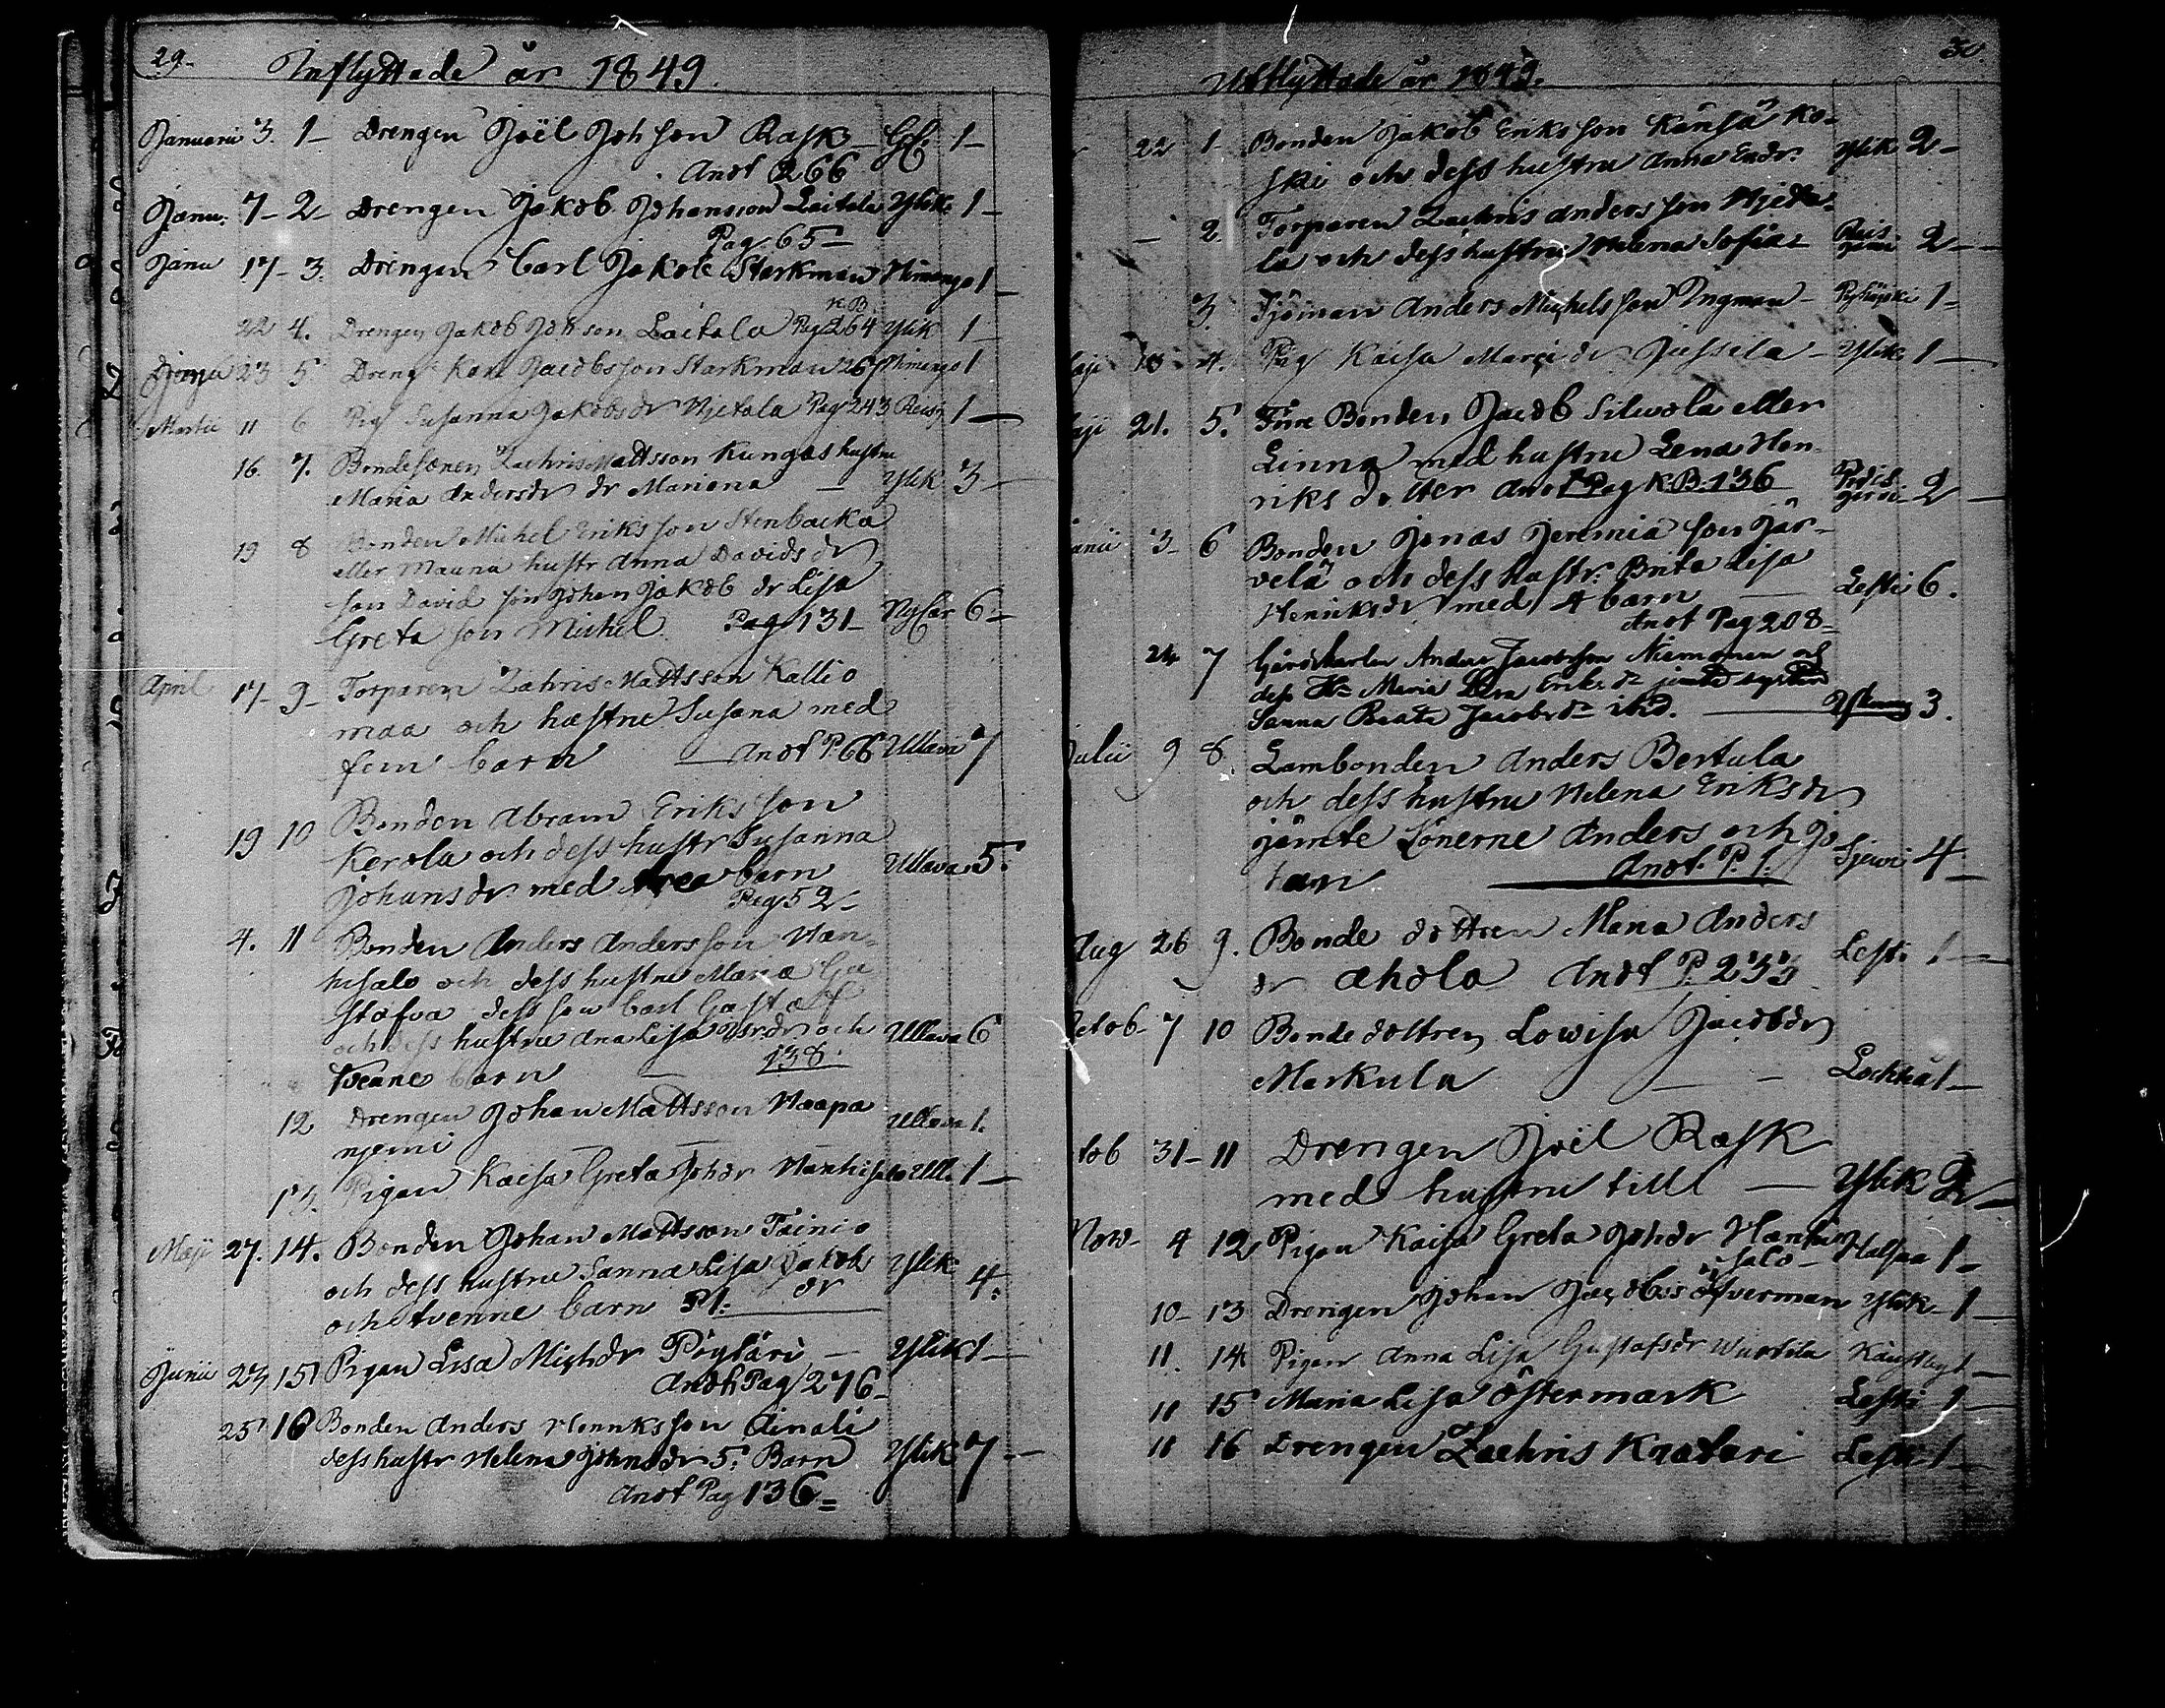 29.
Inflyttade år 1849.
Januarii 3. 1 Drengen Joël Johsson Rask 1
Anot 266
Janu. 7 2 Drengen Jakob Johansson Laitala Ylik. 1
Pag. 65
Janu 17 3. Drengen Carl Jakob Starkman Himango 1
K.B.
22 4. Drengen Jakob Johsson Laitala Pag 264 Ylik 1
23 5 Dreng Karl Jacobsson Starkman 267 Himango 1
Martii 11 6 Pig Susanna Jakobsdr Hjetala Pag 243 Reisj 1
16. 7. Bondesonen Zachris Mattsson Kungas hustru
Maria Andersdr dr Mariana Ylik 3
19 8 Bonden Michel Eriksson Stenbacka
eller Mauna hustr Anna Davids dr
son David son Johan Jakob dr Lisa
Greta son Michel Pag 131 NyCar 6
April 17 9 Torparen Zahris Mattsson Kallio
maa och hustru Susana med
fem barn Anot P. 66 Ullava 7
19 10 Bonden Abram Eriksson
Kerola och dess hustr Susanna
Johansdr med trea barn Ullava 5.
Pag 52
4. 11 Bonden Anders Andersson Han
hisalo och dess hustru Maria Gu
stafva dess son Carl Gustaf
och dess hustru Ana Lisa och Ullava 6
Tvenne barn 138.
12 Drengen Johan Mattsson Haapa
njemi Ullava 1.
13. Pigan Kaisa Greta Johdr Hanhisalo Ull. 1
Maji 27. 14. Bonden Johan Mattsson Tainio
och dess hustru Sanna Lisa Jakobs
dr Ylik 4.
och tvenne barn P1.
Junii 23 15 Pigan Lisa Michdr Pöyläri Ylik 1
Anot Pag 276
25 16 Bonden Anders Henriksson Ainali
dess hustr Helena Johnsdr 5. Barn Ylik 7
Anot Pag 136
30.
Utflyttade år 1849.
22 1 Bonden Jakob Eriksson Känsä Ko
ski och dess hustru Anna Ylik 2
2. Torparen Zachris Andersson Hjeta
la och dess hustru Helena Sofia Reis
järvi 2
3. Anders Michelsson Ingman Pyhäjoki 1
4. Pig Kaisa Jussila Ylik 1
aji 21. 5. Förre Bonden Jacob Silwola eller
Linna med hustru Lena Hen
riks dotter Anot Pag K.B. 136 2
3 6 Bonden Jonas Jeremiä son Jär
velä och dess hustr. Brita Lisa
Henriksdr med 4 barn Lesti 6.
Anot Pag 208
24 7 Anders Jacobsson Niemonen och
dess Hu Maria Lena Eriksdr jemte systern
Sanna Beata Jacobsdr 3.
Julii 9 8 Landbonden Anders Bertula
och dess hustru Helena Eriksdr
jämte Sönerne Anders och Jo
han Anot. P. 1. Sjewi 4
Aug 26 9. Bonde dottren Maria Anders
dr Ahola Anot P. 233 Lesti 1
ctob 7 10 Bonde dottren Lowisa Jacobdr
Markula Lochteå 1
tob 31 11 Drengen Joël Rask
med hustru till Ylik 2
Now 4 12 Pigan Kaisa Greta Johdr Hanhi
salo Halsua 1
10 13 Drengen Johan Jacobss Öfverman Ylik 1
11. 14 Pigan Anna Lisa Gustafsdr Wuotila Kaustby 1
11 15 Maria Lisa Östermark Lesti 1
11 16 Drengen Zachris Knatari Lesti 1